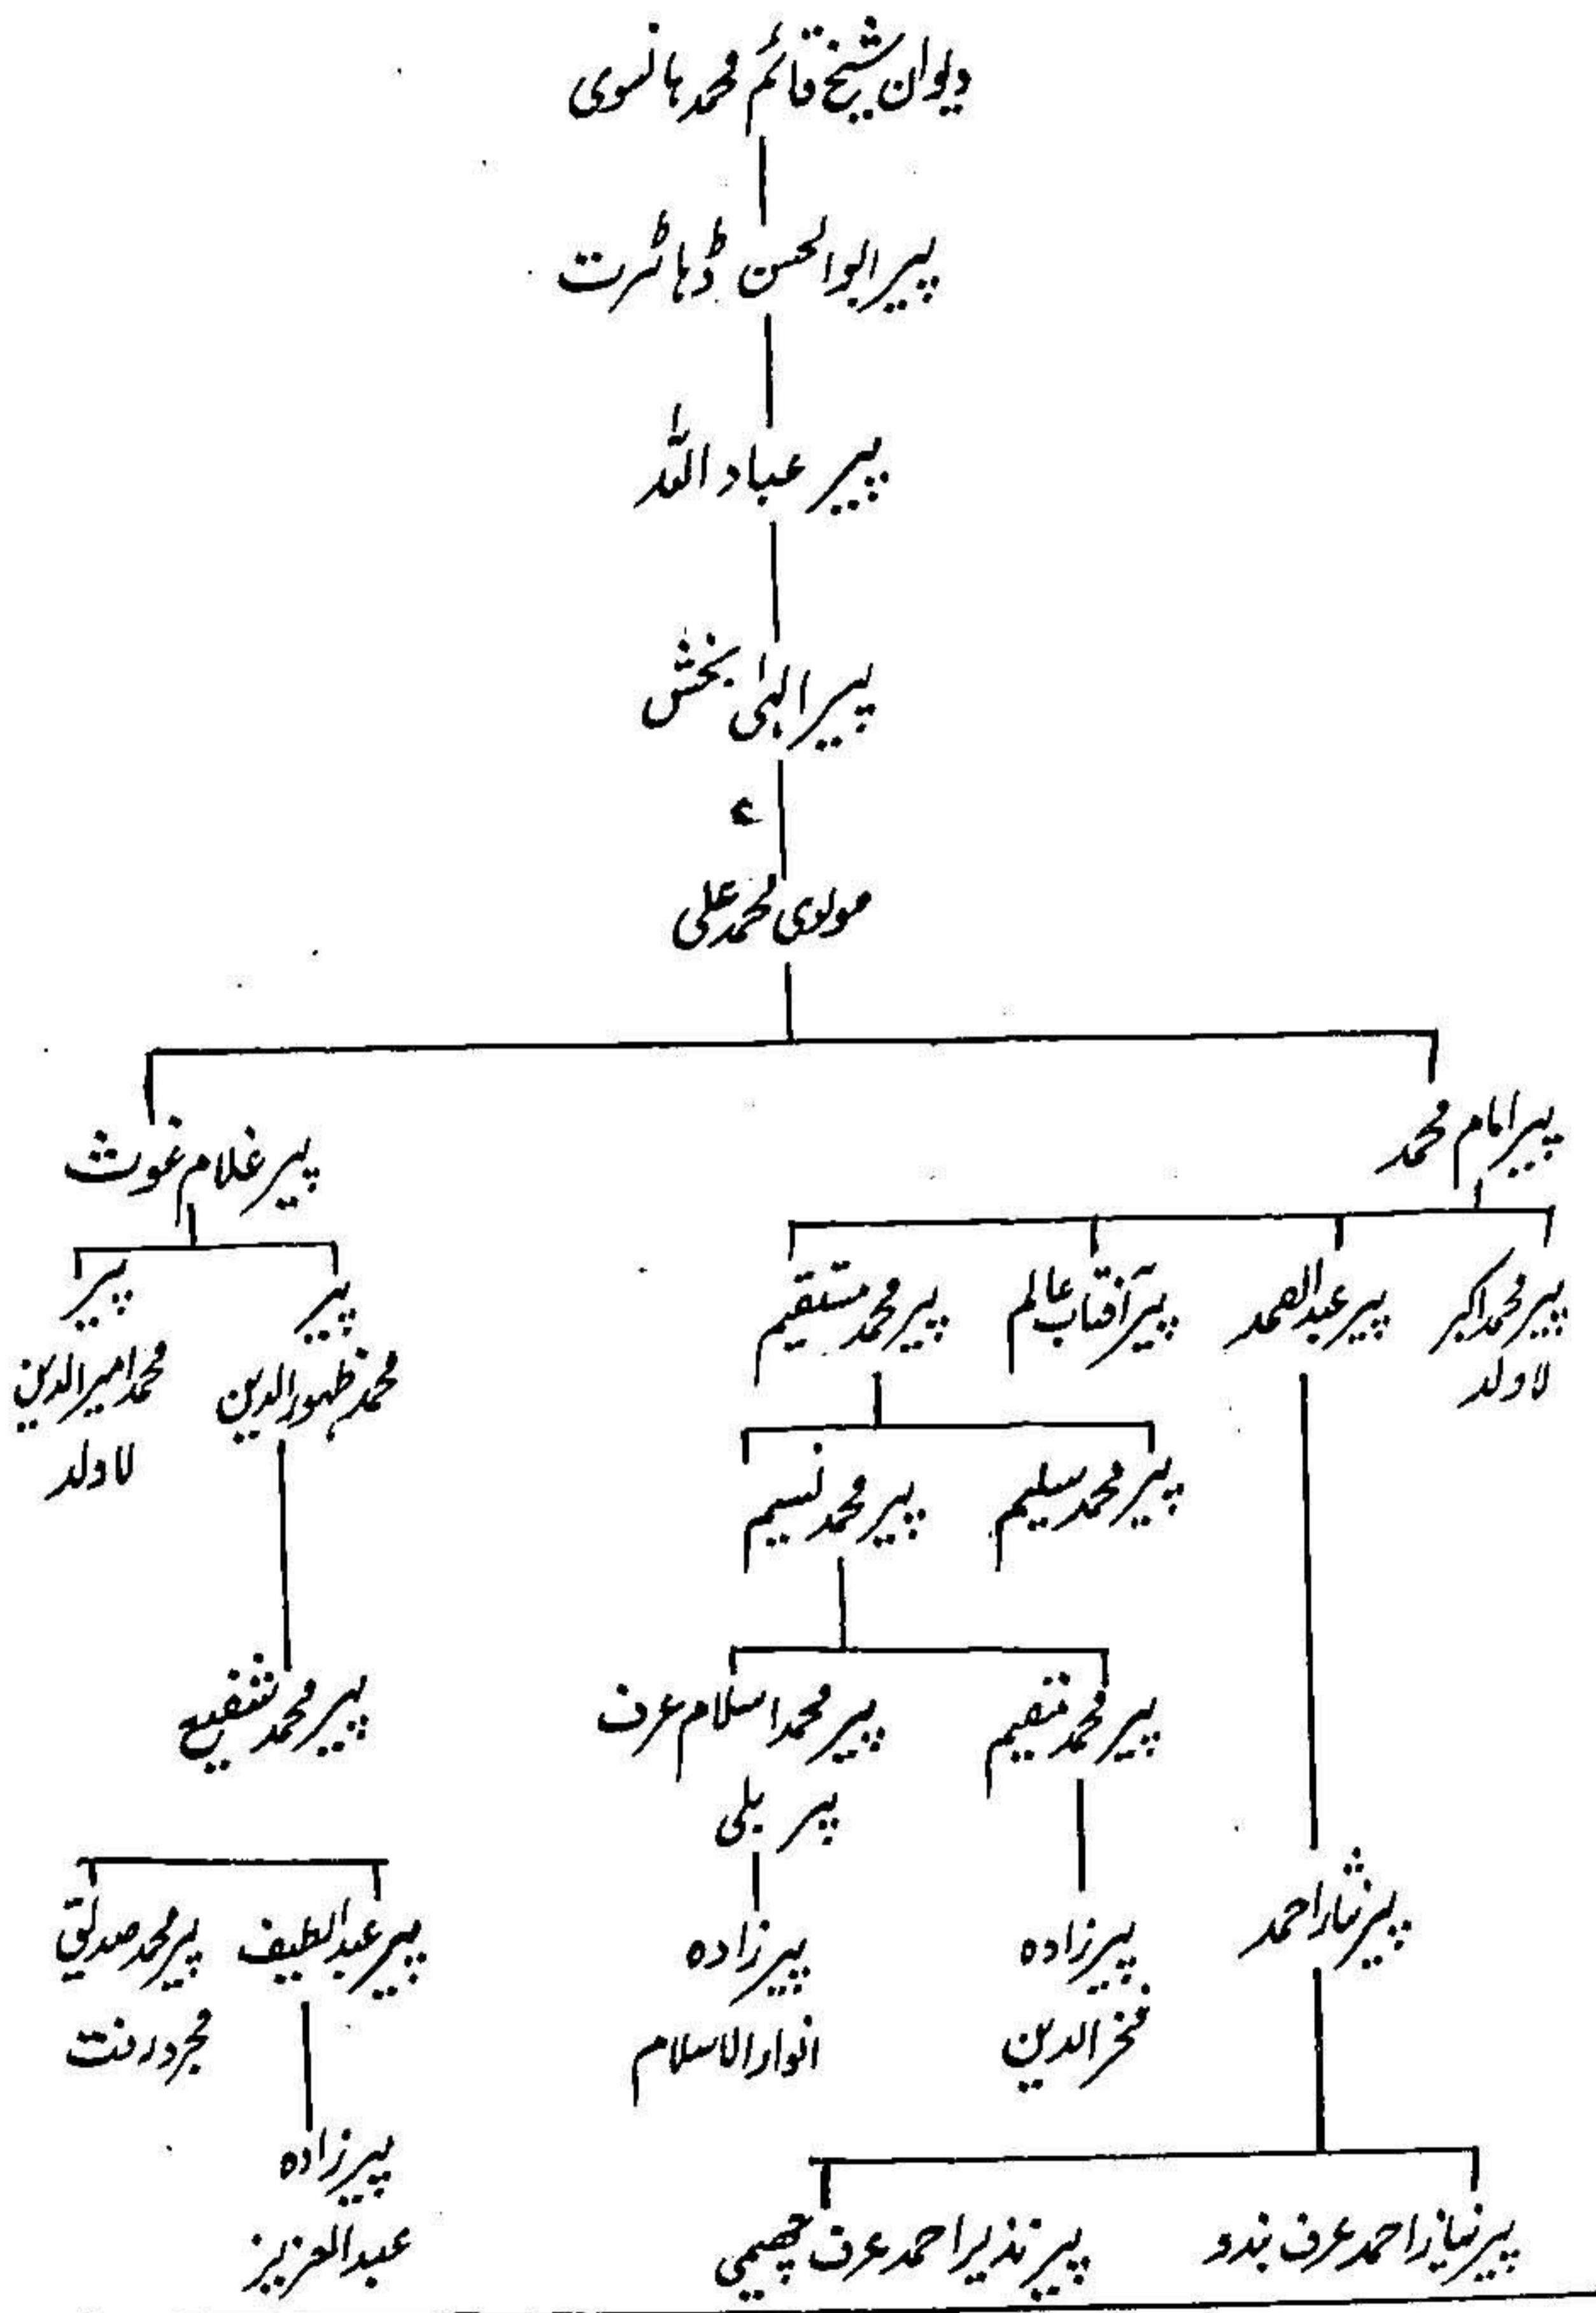 دیوان شیخ قائم محمد ہانسوی
پیر ابوالحسن ڈہاٹرت
پیر عباد اللہ
پیر الہٰی بخش
مولوی محمد علی
پیر امام محمد
پیر غلام غوث
پیر محمد اکبر
لاولد
پیر عبدالصمد
پیر آفتاب عالم
پیر محمد مستقیم
پیر
محمد ظہورالدین
پیر
محمد امیرالدین
لاولد
پیر محمد سلیم
پیر محمد نسیم
پیر محمد مقیم
پیر محمد اسلام عرف
پیر بلی
پیر محمد شفیع
پیر نثار احمد
پیرزادہ
فخرالدین
پیرزادہ
انوارالاسلام
پیر عبدالطیف
پیر محمد صدیق
مجرد رفت
پیرزادہ
عبدالعزیز
پیر نیاز احمد عرف بندو
پیر نذیر احمد عرف چھیمی